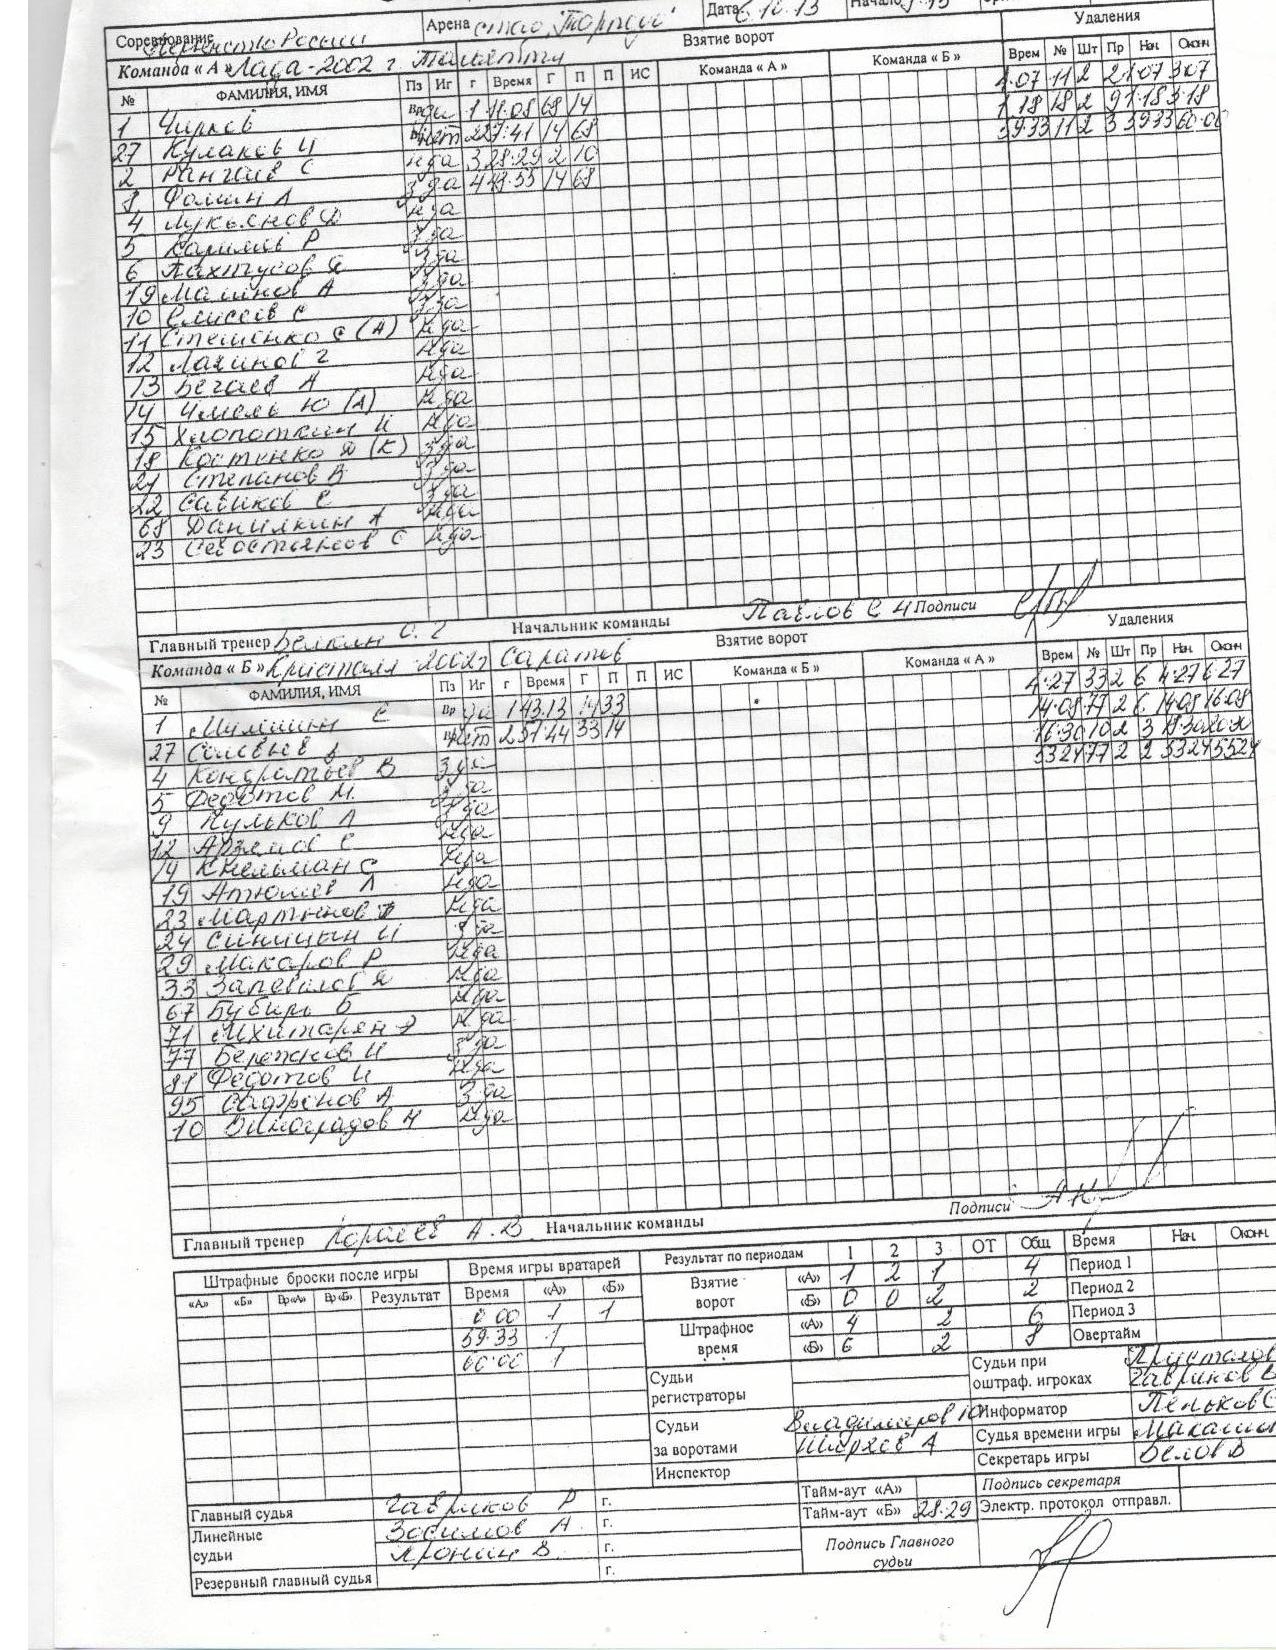 Соревнование Первенство России Арена стад. "Торпедо" Дата 6.10.13 Начало
Команда « А » Лада-2002 г. Тольятти Взятие ворот Удаления
№ ФАМИЛИЯ, ИМЯ Пз Иг г Время Г П П ИС Команда « А » Команда « Б » Врем № Шт Пр Нач. Оконч
1 Чирков Вр да 1 11:08 68 14 1:07 11 2 2 1:07 3:07
27 Кулаков И Вр нет 2 27:41 14 68 1:18 18 2 9 1:18 3:18
2 С н да 3 28:29 2 10 59:33 11 2 3 59:33 60:00
8 Фомин А з да 4 49:55 14 68
4 Лукьянов Д н да
5 Каримов Р з да
6 Пахтусов Я з да
19 А з да
10 Елисеев С з да
11 Стешенко С (А) н да
12 Г н да
13 Бегаев А н да
14 Чмель Ю (А) н да
15 Хлопоткин И н да
18 Костенко Я (К) з да
21 Степанов В з да
22 Савиков С з да
68 Данилкин А н да
23 С н да
Главный тренер Белкин С. Г Начальник команды Павлов С Н Подписи
Команда « Б » Кристалл-2002г Саратов Взятие ворот Удаления
№ ФАМИЛИЯ, ИМЯ Пз Иг г Время Г П П ИС Команда « Б » Команда « А » Врем № Шт Пр Нач. Оконч
1 С Вр да 1 43:13 14 33 4:27 33 2 6 4:27 6:27
27 Вр нет 2 57:44 33 14 14:08 77 2 6 14:08 16:08
4 Кондратьев В з да 10 2 3
5 Федотов М. з да 53:24 77 2 2 53:24 55:24
9 Кульков Л з да
12 С н да
14 Кнельман С н да
19 Атюшев Л н да
23 Мартынов н да
24 Синицын И з да
29 Макаров Р н да
33 Запевалов Я н да
67 Бубирь Б н да
71 Мхитарян Э н да
77 Бережнов И з да
81 Федотов И н да
95 Сафронов А з да
10 Виноградов Н н да
Главный тренер А. В. Начальник команды Подписи
Штрафные броски после игры Время игры вратарей Результат по периодам 1 2 3 ОТ Общ Время Нач. Оконч.
«А» «Б» Вр«А» Вр«Б» Результат Время «А» «Б» Взятие ворот «А» 1 2 1 4 Период 1
0:00 1 1 «Б» 0 0 2 2 Период 2
59:33 1 Штрафное время «А» 4 2 6 Период 3
60:00 1 «Б» 6 2 8 Овертайм
Судьи регистраторы Судьи при оштраф. игроках
Гавриков В
Судьи за воротами Владимиров Ю Информатор Пеньков С
А Судья времени игры
Инспектор Секретарь игры Белов В
Тайм-аут «А» Подпись секретаря
Главный судья Гавриков Р г. Тайм-аут «Б» 28:29 Электр. протокол отправл.
Линейные судьи А. г. Подпись Главного судьи
Пронин В. г.
Резервный главный судья г.